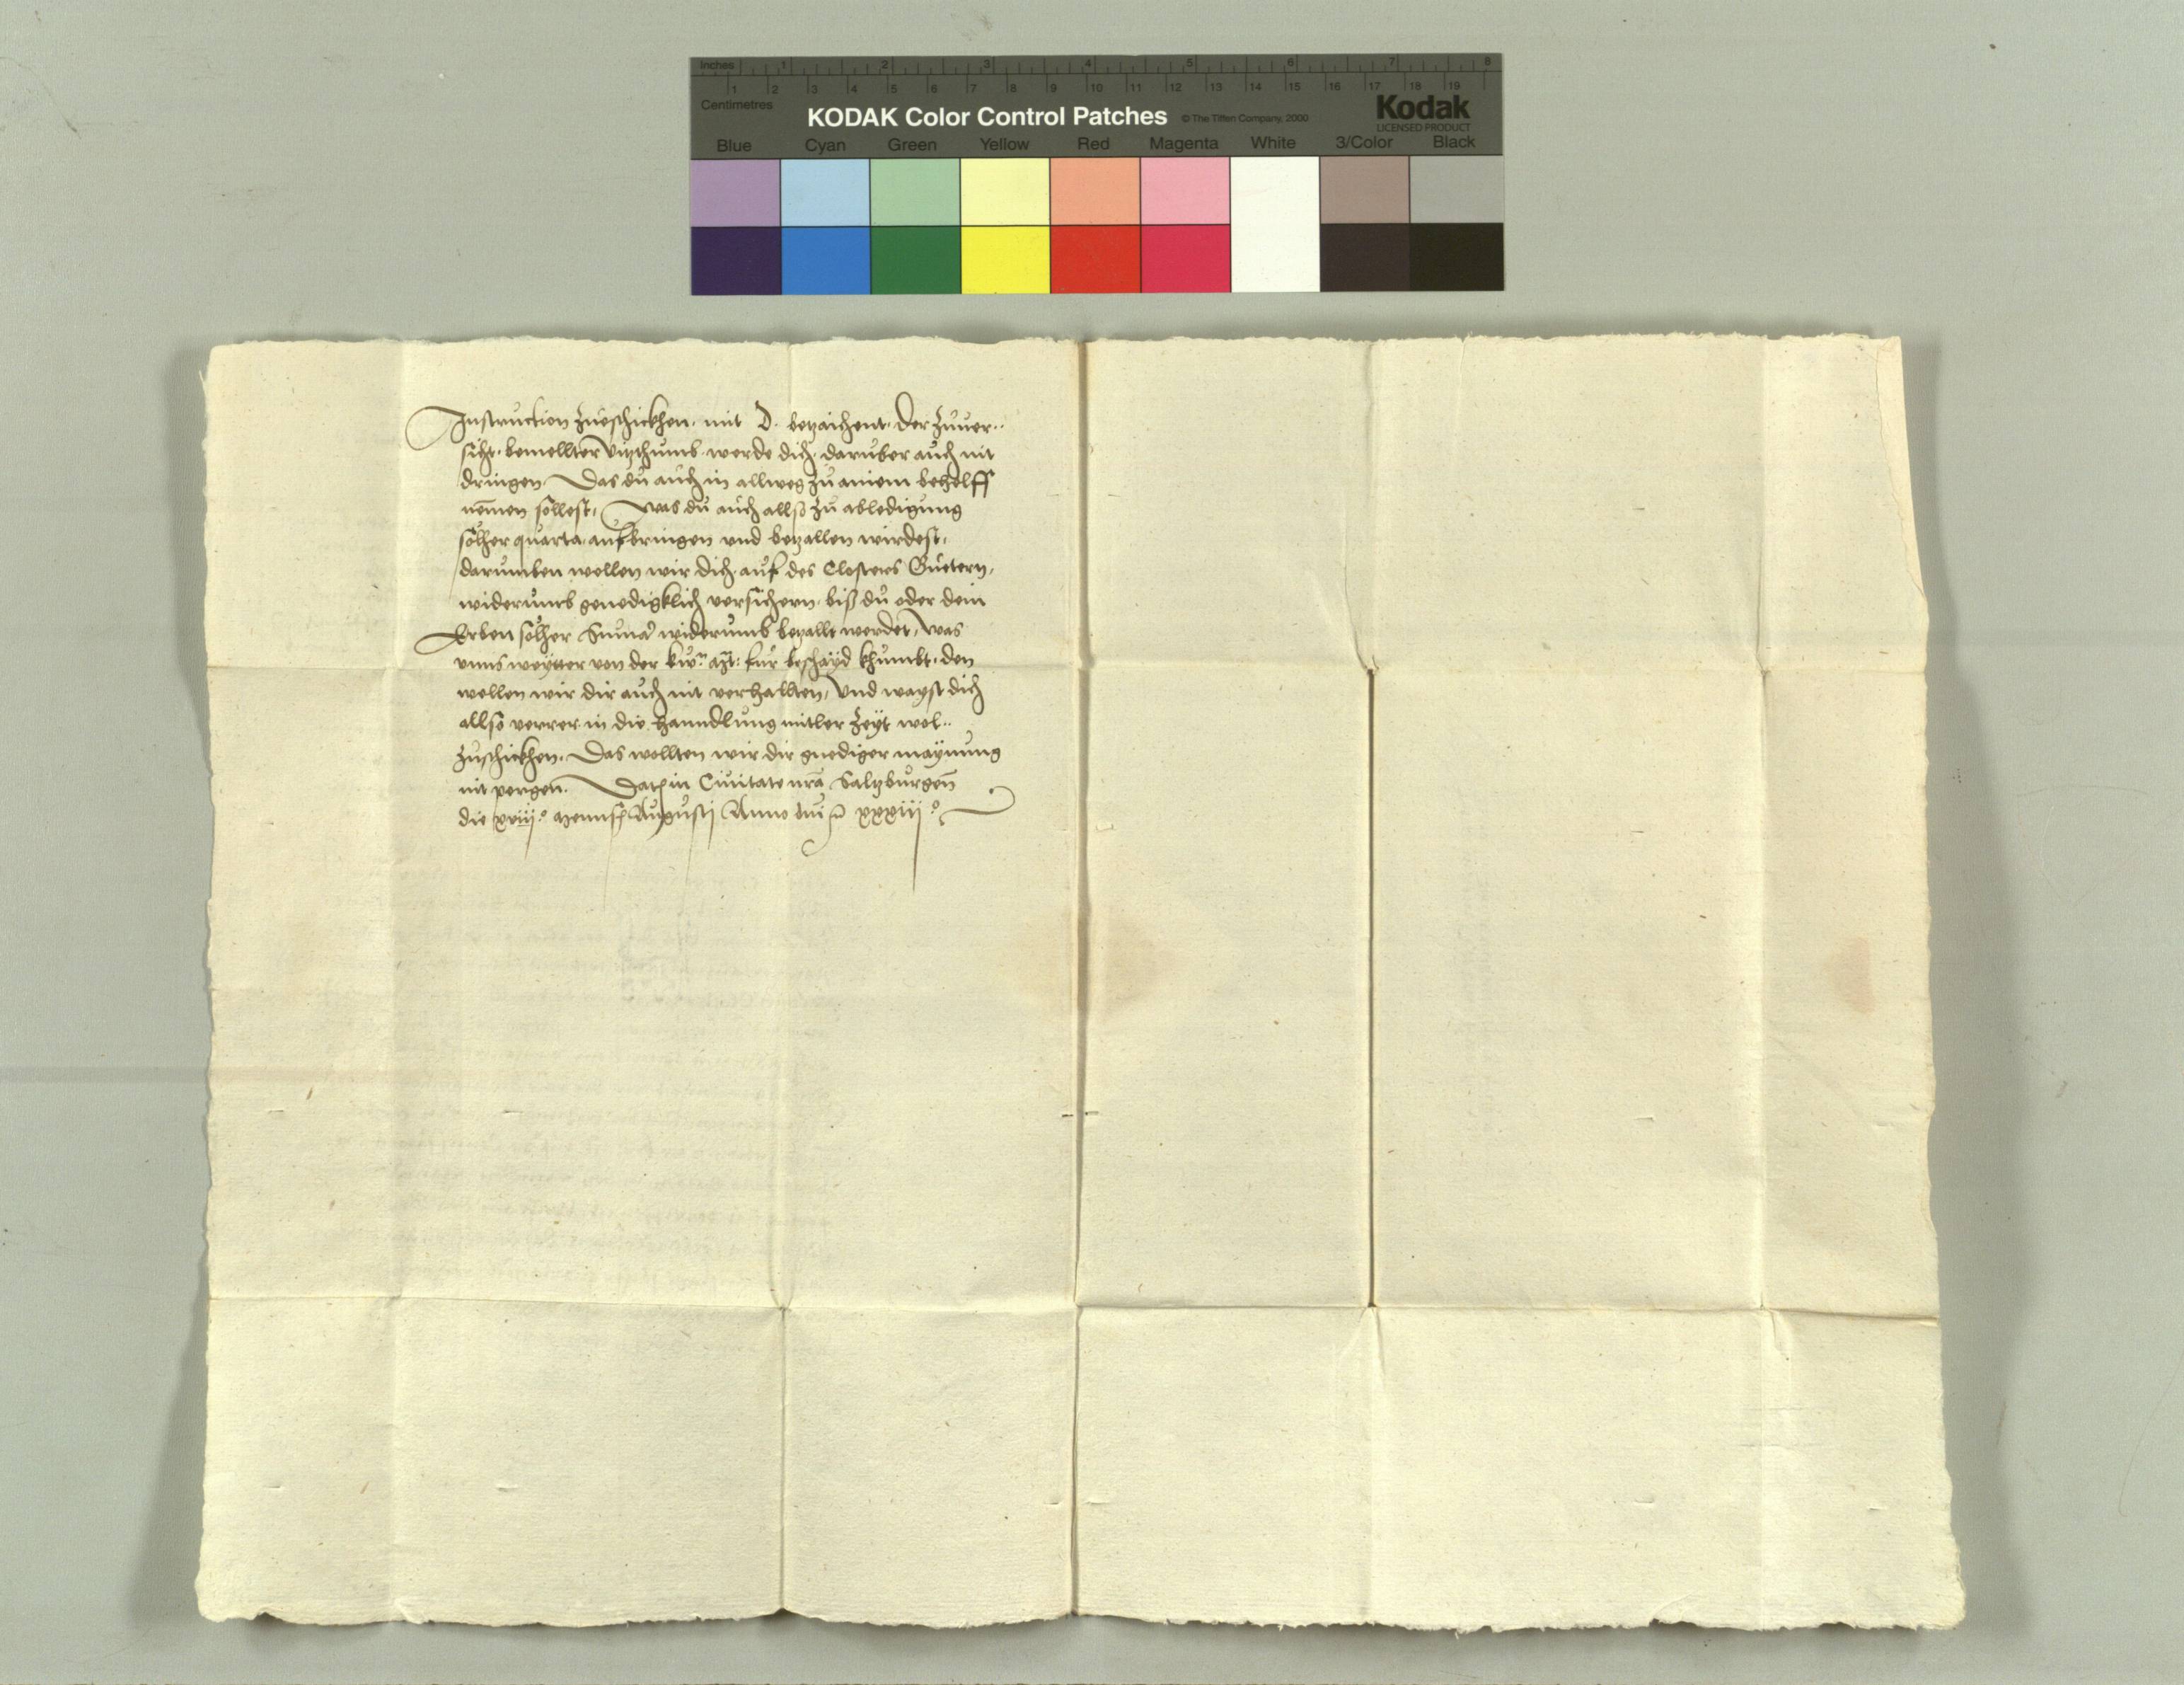 Inches 1 2 3 4 5 6 7 8
1 2 3 4 5 6 7 8 9 10 11 12 13 14 15 16 17 18 19
Centimetres
KODAK Color Control Patches © The Tiffen Company, 2000 Kodak
LICENSED PRODUCT
Blue Cyan Green Yellow Red Magenta White 3/Color Black
Instruction zueschickhen. mit D. betzaichent. der zuuer..
sicht. bemellter Vitzthumb. werde dich. daruber auch nit
dringen. Das du auch in allweg zu ainem behelff
nemen sollest, Was du auch allso zu abledigung
solher quarta. aufbringen vnd betzallen wirdest,
darumben wellen wir dich auf des Closters Guetern,
widerumb genedigklich versichern. biß du oder dein
Erben solher Suma widerumb betzallt werdet, Was
vnns weytter von der kü:n Mt: fur beschayd khumbt. den
wellen wir dir auch nit verhallten, Vnd wayst dich
allso verrer in die hanndlung mitler zeyt wol..
zuschickhen. Das wollten wir dir genediger maynung
nit pergen. Dat in Ciuitate nra Saltzburgen
die xviij.o Mensis Augusti Anno dni xxxiij.o